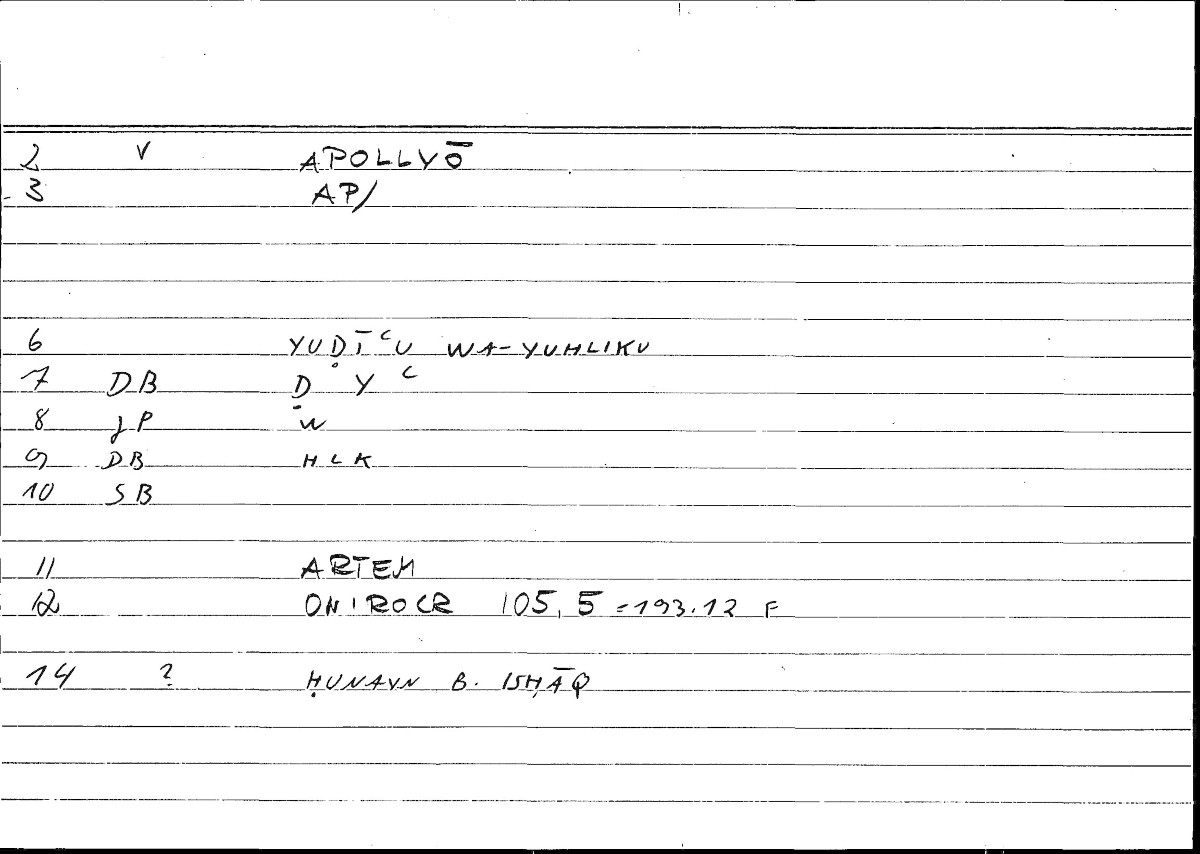 2 V APOLLYŌ
3 AP/
6 YUḌĪʿU WA-YUHLIKU
7 DB Ḍ Y ʿ
8 JP W̄
9 DB HLK
10 SB
11 ARTEM
12 ONIROCR 105,5 = 193.12 F
14 ? ḤUNAYN B. ISḤĀQ